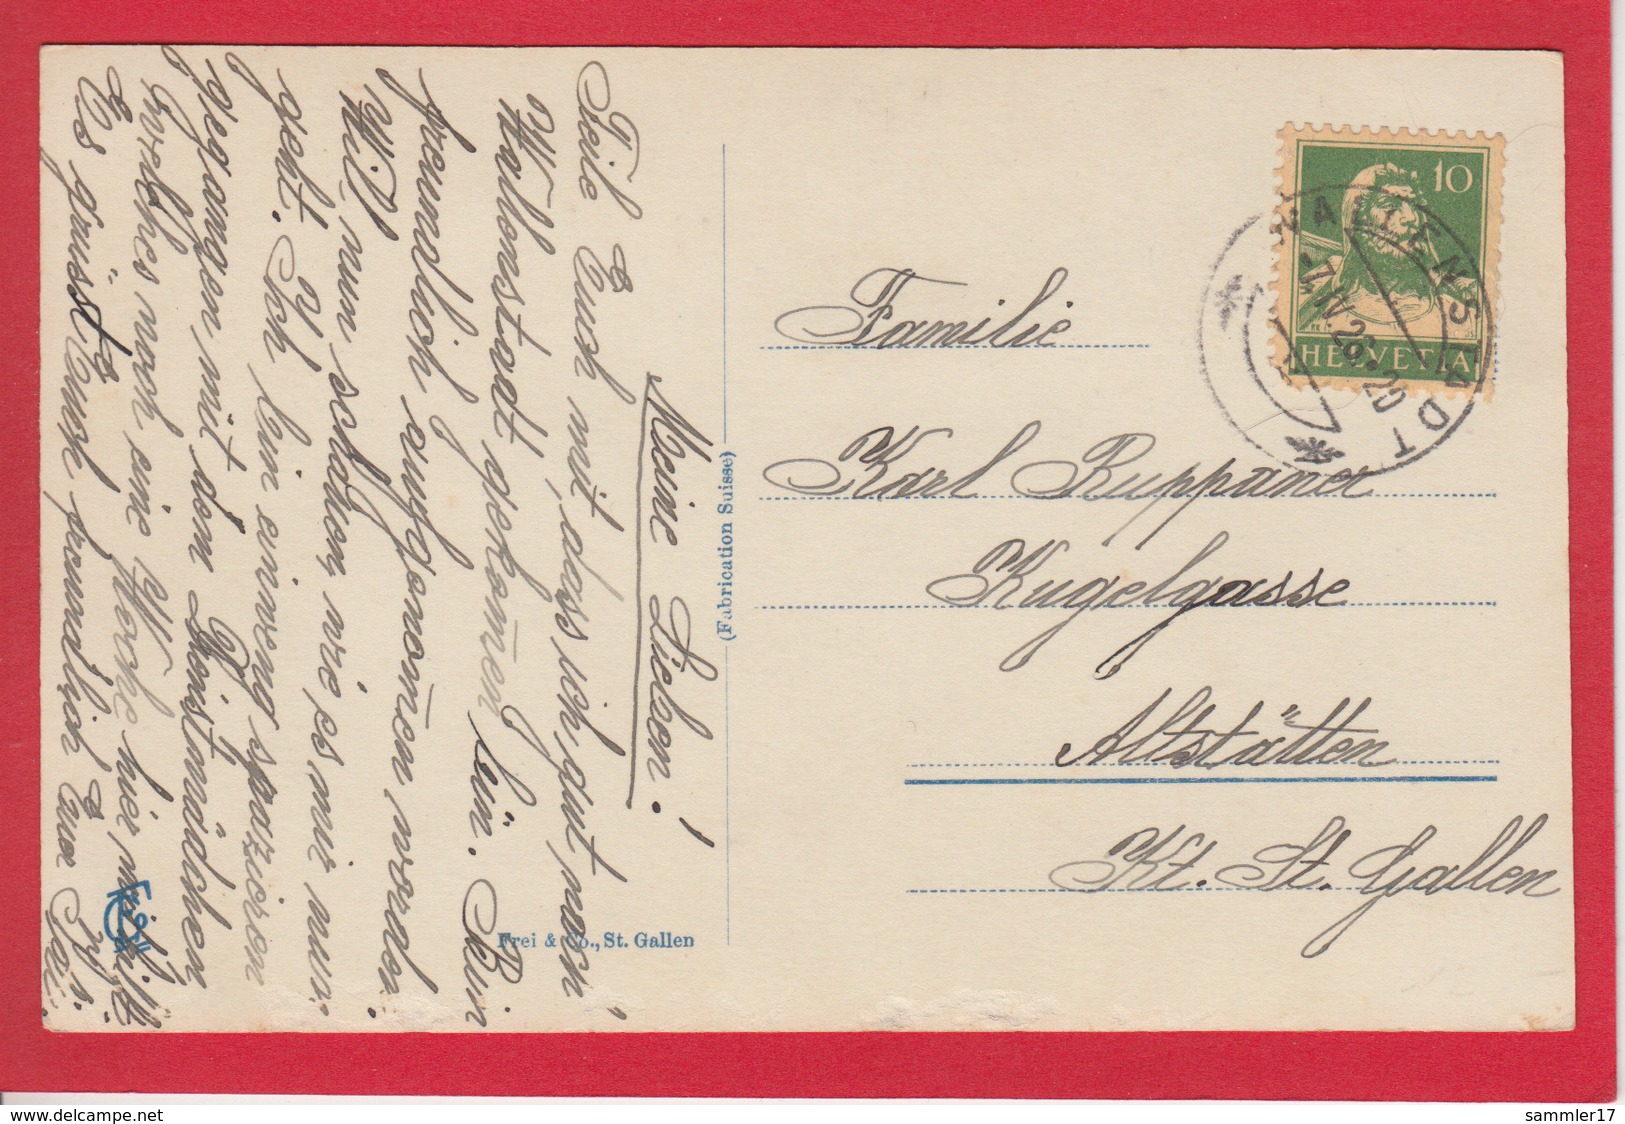 Meine Lieben!
Teile Euch mit, dass ich gut nach
Wallenstadt gekom̅en bin. Bin
freundlich aufgenom̅en worden.
Will nun schauen, wie es mir nur
geht. Ich bin ein wenig spazieren
gegangen mit dem Dienstmädchen
welches noch eine Woche hier
Es grüsst Euch freundlich Eure
(Fabrication Suisse)
Frei & Co., St. Gallen
10
HELVETIA
WALLENSTADT
7.IV.26.20
Familie
Karl Ruppaner
Kugelgasse
Altstätten
Kt. St. Gallen
www.delcampe.net
sammler17